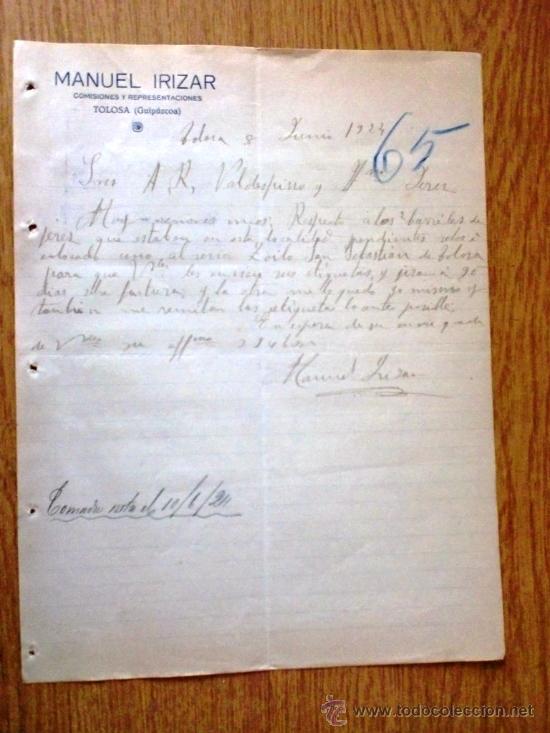 MANUEL IRIZAR
COMISIONES Y REPRESENTACIONES
TOLOSA (Guipúzcoa)
Tolosa 8 Junio 1924
65
Sres A. R. Valdespino y Hno Jerez
Muy señores mios: Respecto a los 2 barriles de
jeres que estaban en esta localidad pendientes
colocado uno al señor Zoilo San Sebastian de tolosa
para que les envien sus etiquetas, y giran a 90
dias la otra me quedo yo mismo y
tambien me remitan las etiquetas lo antes posible,
En espera de su
de
Manuel Irizar
Tomada nota el 10/6/24
todocoleccion
www.todocoleccion.net